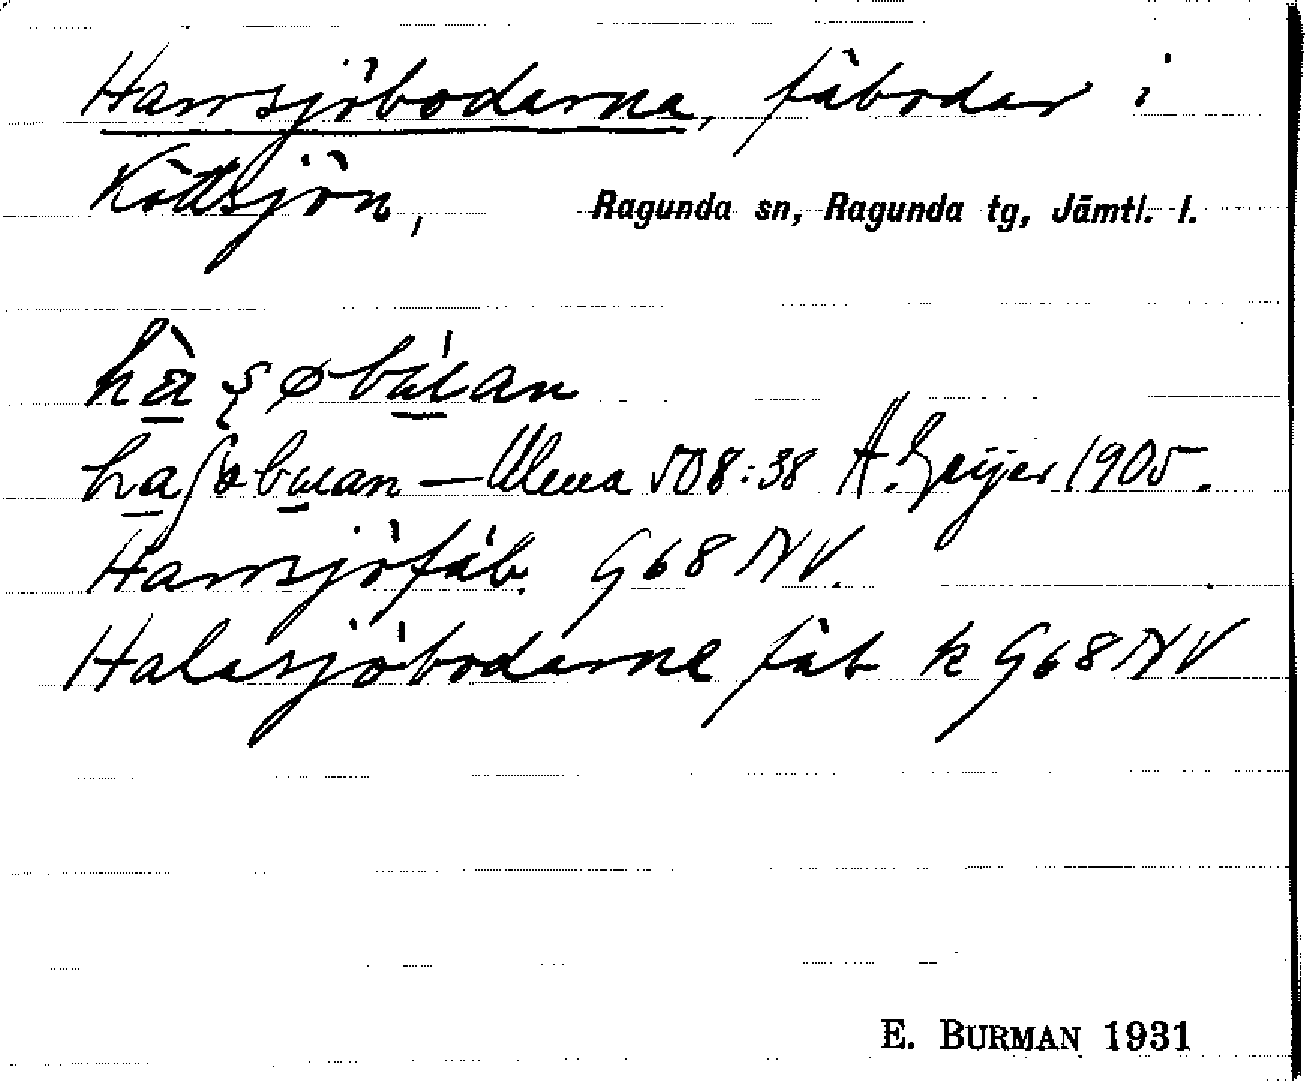 Harrsjöbodarna, fäbodar i
Köttsjön, Ragunda sn, Ragunda tg, Jämtl. l.
Ulma 508:38 A. Geijer 1905.
Harrsjöfäb. G68 NV.
Halasjöbodarne fäb k G68 NV
E. BURMAN 1931